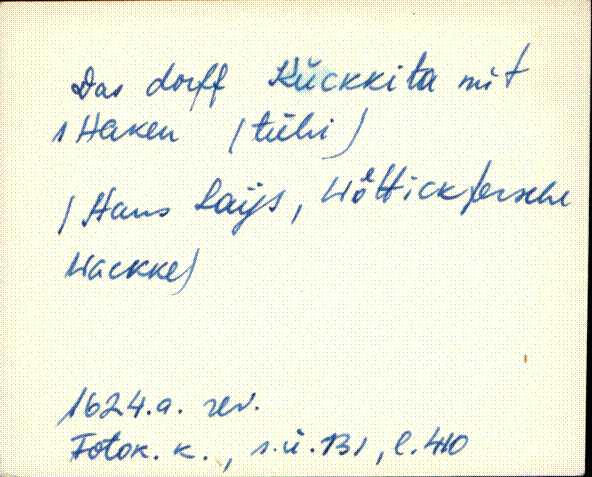 Das dorff Kückkita mit
1 Haken (tühi)
(Hans Laijs,
Wackke)
1624.a. rev.
Fotok. k., s.ü. 131, l. 410